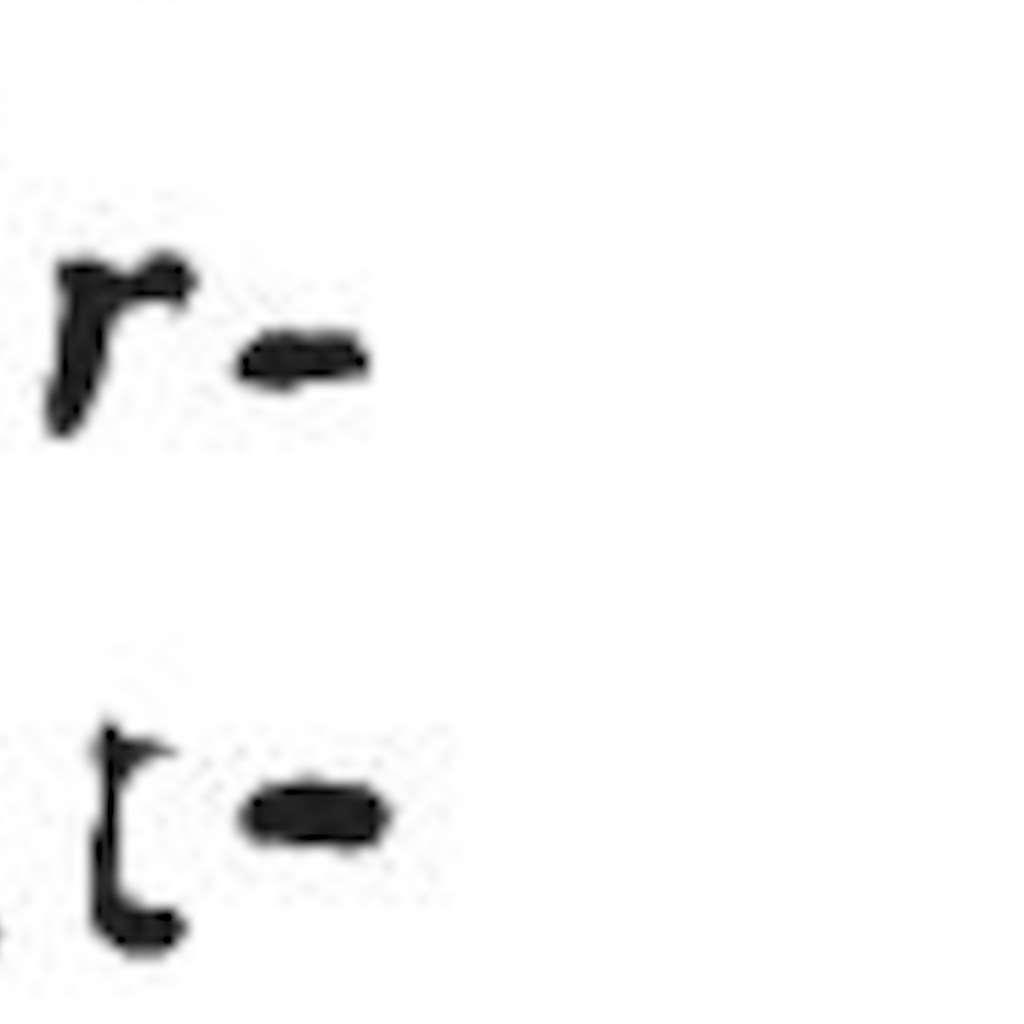 r-
t-